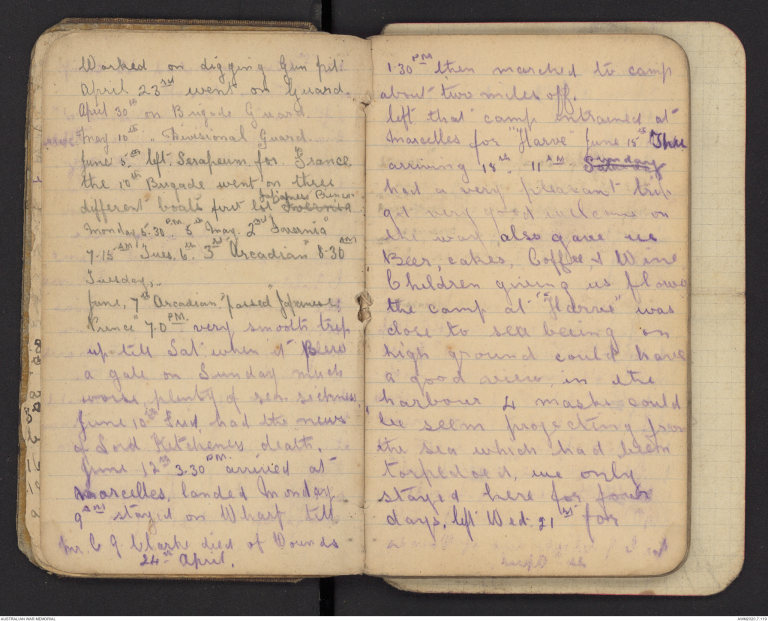 Worked on digging Gun pit
April 23rd went on Guard.
April 30th on Brigade Guard.
May 10th " Divisional Guard.
June 5th left Serapeum for France
the 10th Brigade went on three
Japanese Prince
different boats first lot Ivernia
Monday 5.30 P.M. 5th May. 2nd "Ivernia"
7.15 AM Tues. 6th. 3rd "Arcadian" 8.30 AM
Tuesday,.
June, 7th Arcadian "passed" Japanese
Prince" 7.0 P.M. very smooth trip
up till Sat when it Blew
a gale on Sunday much
worse, plenty of sea sickness
June 10th had the news
of Lord Kitcheners death.
June 12th 3.30 P.M. arrived at
Marcelles, landed Monday
9 AM stayed on Wharf till
Mr C G Clark died of Wounds
24th April.
1.30 PM then marched to camp
about two miles off.
left that camp entrained at
Marcelles for "Harve" June 15th Thur
arriving 18th 11 AM Sunday
had a very pleasant trip
got very good welcome on
the way also gave us
Beer, cakes, Coffee & Wine
Children giving us flowers
the camp at "Harve" was
close to sea being on
high ground could have
a good view, in the
harbour 4 masts could
be seem projecting from
the sea which had been
torpedoed, we only
stayed here for four
days, left Wed. 21st for
AUSTRALIAN WAR MEMORIAL